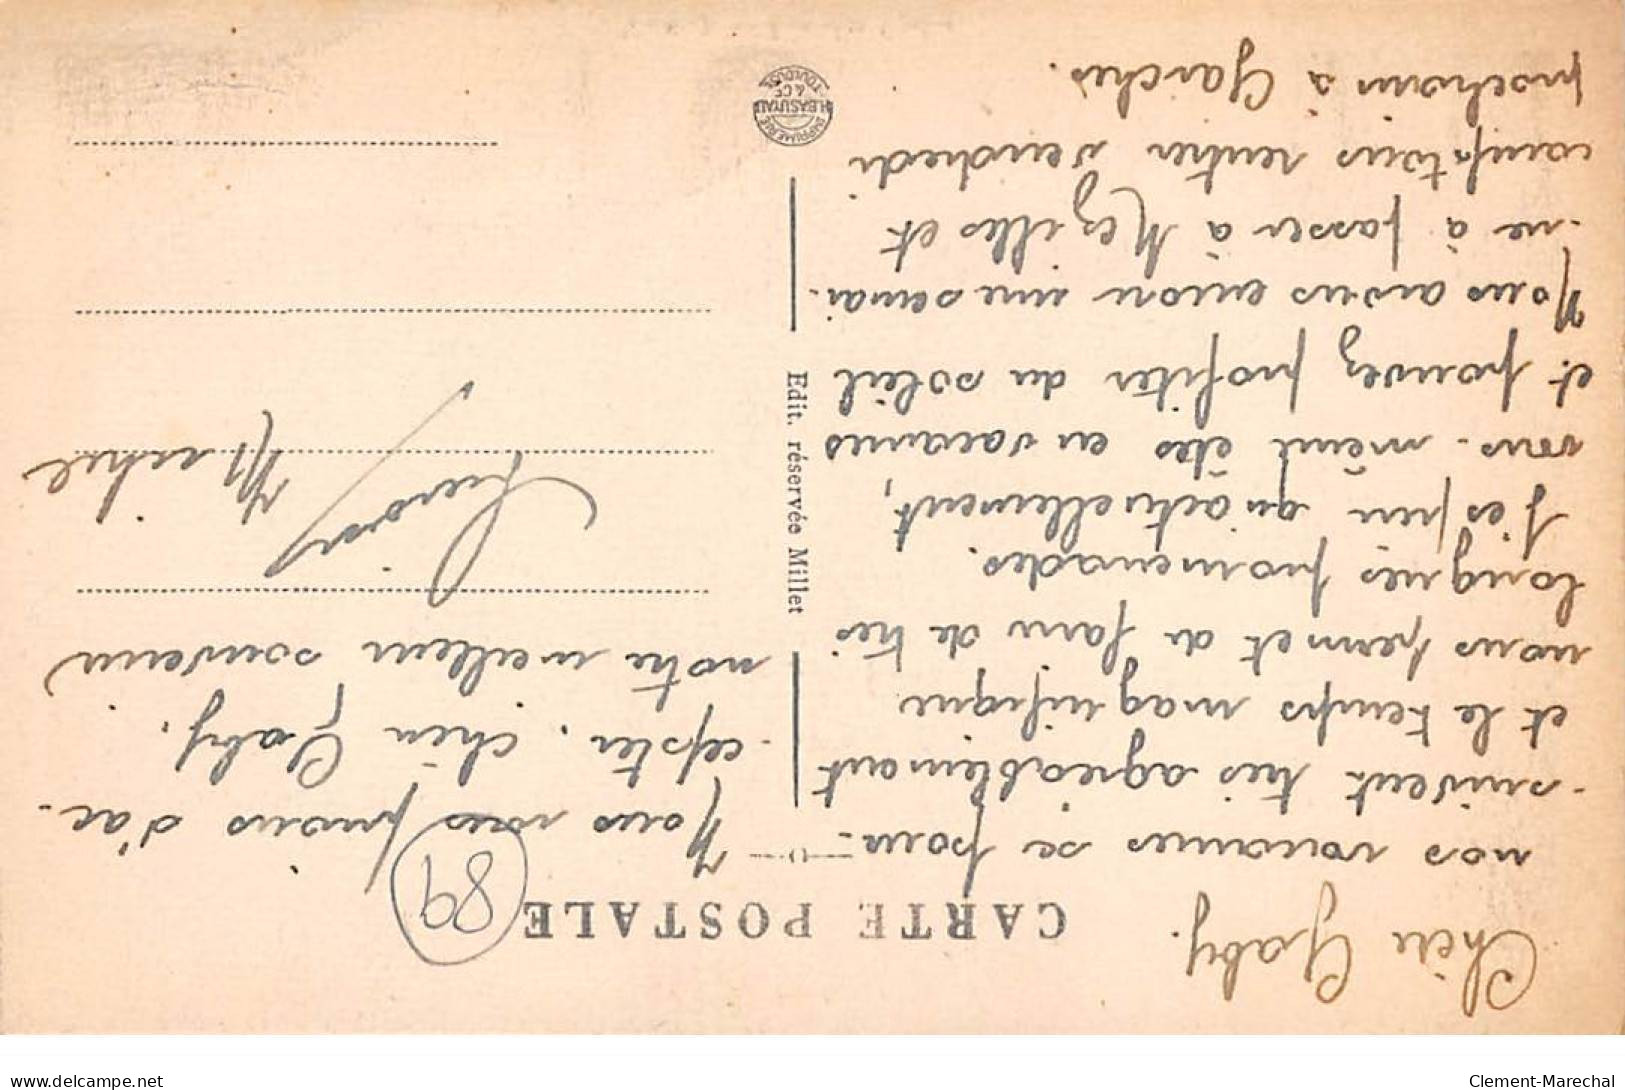 CARTE POSTALE
Chère Gaby.
nos vacances se pour-
-suivent très agréablement
et le temps magnifique
nous permet de faire de très
longues promenades.
J'espère qu'actuellement,
vous-même êtes en vacances
et pouvez profiter du soleil
Nous avons encore une semai-
-ne à passer à Mézilles et
comptons rentrer vendredi
prochain à Garches.
Nous vous prions d'ac-
-cepter, chère Gaby,
notre meilleur souvenir
Michel
89
Edit. réservée Millet
IMPRIMERIE
H. BASUYAU
& Cie
TOULOUSE
www.delcampe.net
Clement-Marechal